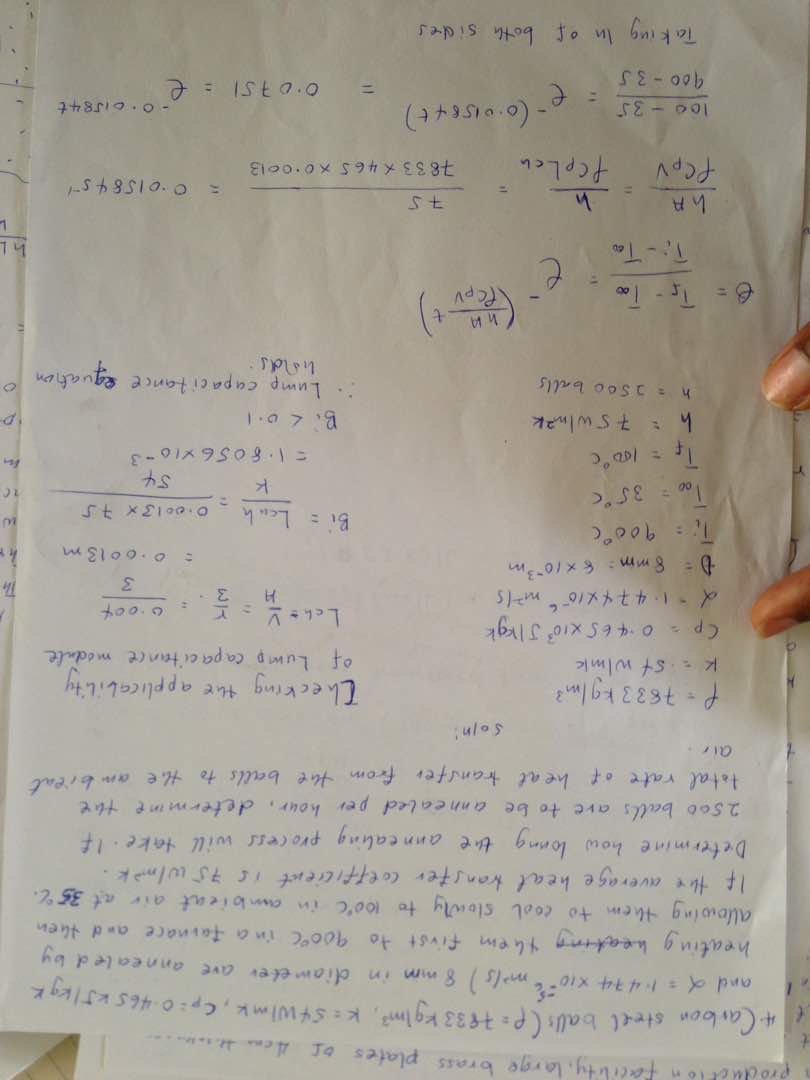 production facility, large brass plates of 4cm
4 Carbon steel balls (ρ = 7833 kg/m³, K = 54 W/mK, Cp = 0.465 KJ/kgK
and α = 1.474 x10⁻⁶ m²/s) 8mm in diameter are annealed by
heating them first to 900°C in a furnace and then
allowing them to cool slowly to 100°C in ambient air at 35°C.
If the average heat transfer coefficient is 75 W/m²K.
Determine how long the annealing process will take. If
2500 balls are to be annealed per hour, determine the
total rate of heat transfer from the balls to the ambient
air.
Soln:
ρ = 7833 kg/m³
K = 54 W/mK
Cp = 0.465 x10³ J/kgK
α = 1.474 x10⁻⁶ m²/s
D = 8mm = 8x10⁻³ m
Ti = 900°C
T∞ = 35°C
Tf = 100°C
h = 75 W/m²K
n = 2500 balls
Checking the applicability
of Lump capacitance module
Lch = V/A = r/3 = 0.004/3
= 0.0013m
Bi = Lch h/K = 0.0013 x 75/54
= 1.8056 x10⁻³
Bi < 0.1
∴ Lump capacitance equation
holds.
θ = Tf - T∞/Ti - T∞ = e^-(hA/ρCpV t)
hA/ρCpV = h/ρCpLch = 75/7833 x 465 x 0.0013 = 0.01584 s⁻¹
100 - 35/900 - 35 = e^-(0.01584t) = 0.0751 = e^-0.01584t
Taking ln of both sides